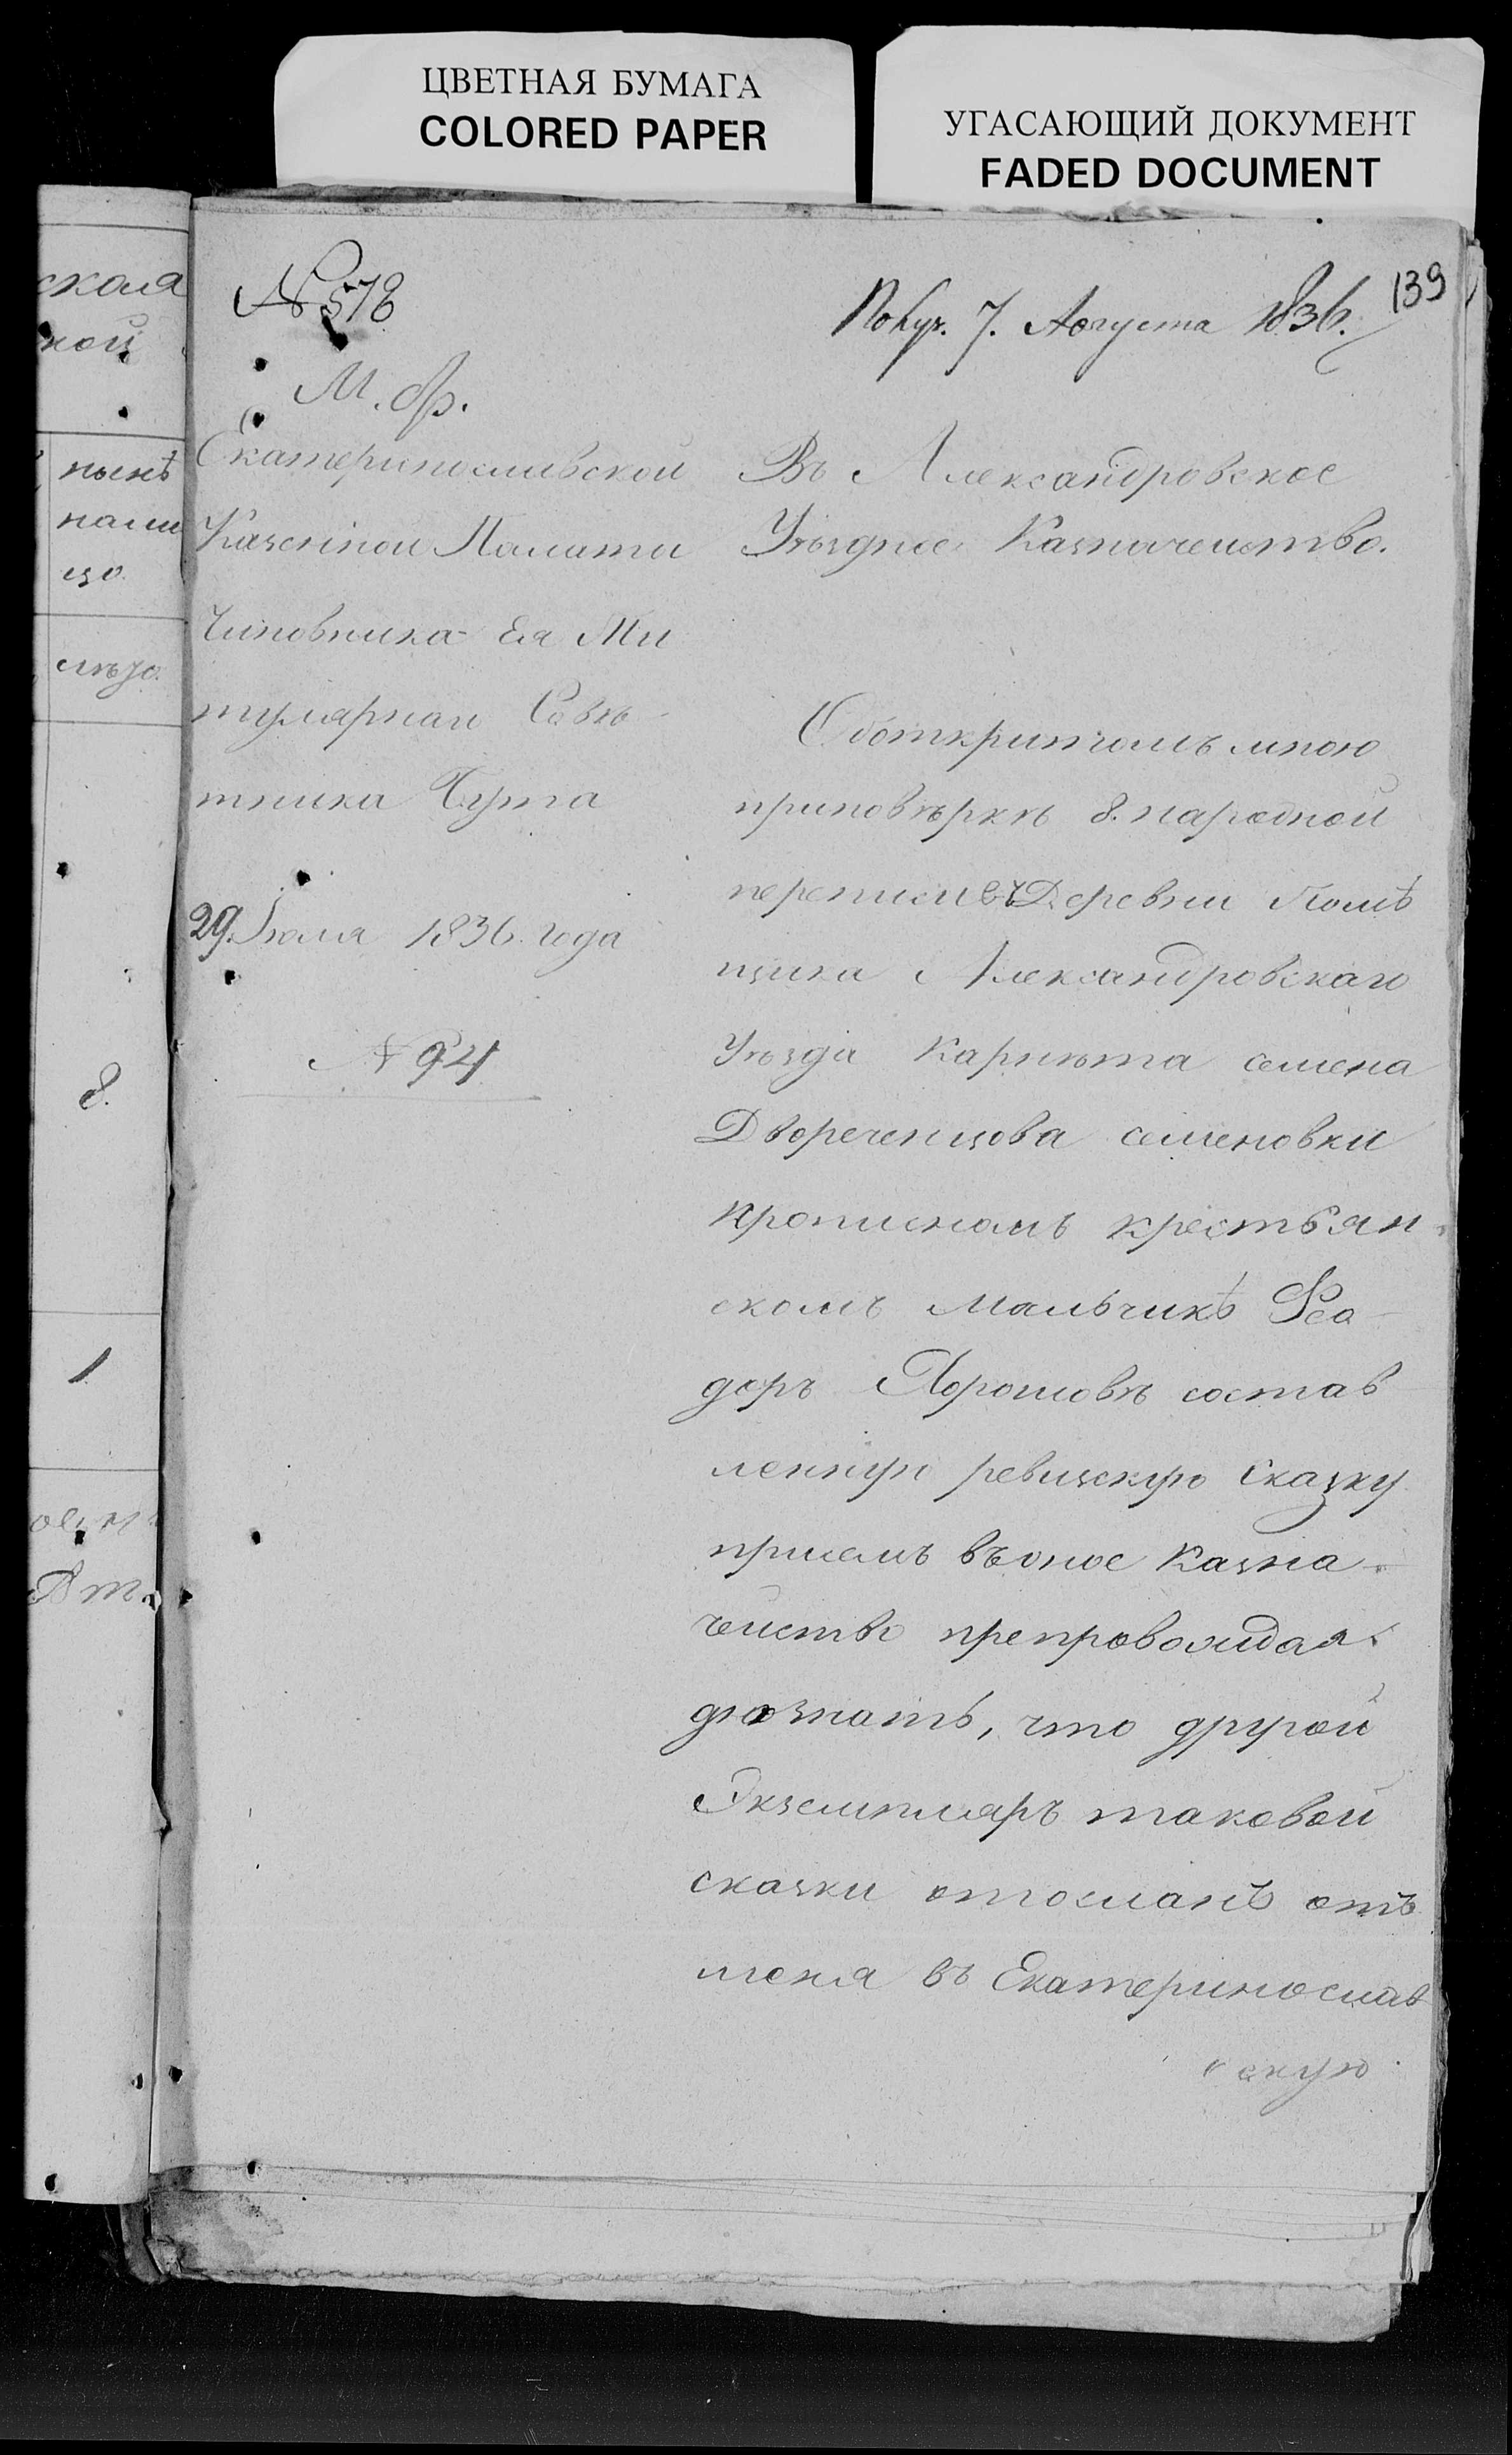 ЦВЕТНАЯ БУМАГА
COLORED PAPER
УГАСАЮЩИЙ ДОКУМЕНТ
FADED DOCUMENT
139
№ 578
Получ. 7. Августа 1836.
М. Ф.
Екатеринославской
Казенной Палаты
Чиновника Ея Ти
тулярнаго Совѣ
тника
29. Іюля 1836. года
№ 94
Въ Александровское
Уѣздное Казначейство.
Оботкритомъ мною
приповѣркѣ 8. народной
переписи въ Деревни Помѣ
щика Александровскаго
Уѣзда Карнѣта семена
Двореченцова семеновки
прописномъ крестьян
скомъ Мальчикѣ Ѳео
доръ состав
ленную ревизскую Сказку
присемъ въоное Казна
чейство препровождая
даю знать, что другой
Экземпляръ таковой
сказки отосланъ отъ
меня въ Екатеринослав
скую
ская
ной
нынѣ
нали
цо.
8.
1